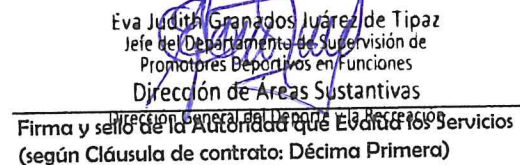 Eva Judith Granados Juárez de Tipaz
Jefe del Departamento de Supervisión de
Promotores Deportivos en Funciones
Dirección de Áreas Sustantivas
Dirección General del Deporte y la Recreación
Firma y sello de la Autoridad que Evalúa los Servicios
(según Cláusula de contrato: Décima Primera)